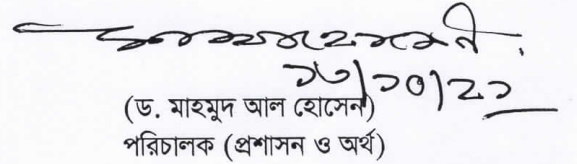 ১৩/১০/২১
(ড. মাহমুদ আল হোসেন)
পরিচালক (প্রশাসন ও অর্থ)